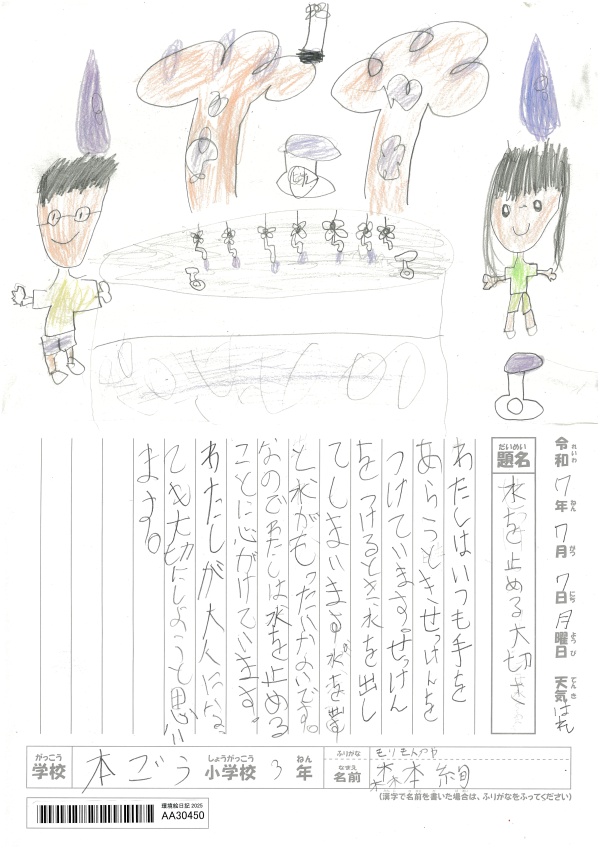 令和7年7月7日月曜日 天気はれ
れいわ ねん がつ にち ようび てんき
だいめい
題名 水を止める大切さ
わたしはいつも手を
あらうときせっけんを
つけています。せっけん
をつけるとき水を出し
てしまいます。水を出す
と水がもったいないです。
なのでわたしは水を止める
ことに心がけています。
わたしが大人になっ
ても大切にしようと思い
ます。
がっこう しょうがっこう ねん ふりがな モリモトアヤ
学校 本ごう小学校 3年 なまえ 名前 森本 絢
(漢字で名前を書いた場合は、ふりがなをふってください)
環境絵日記 2025
AA30450